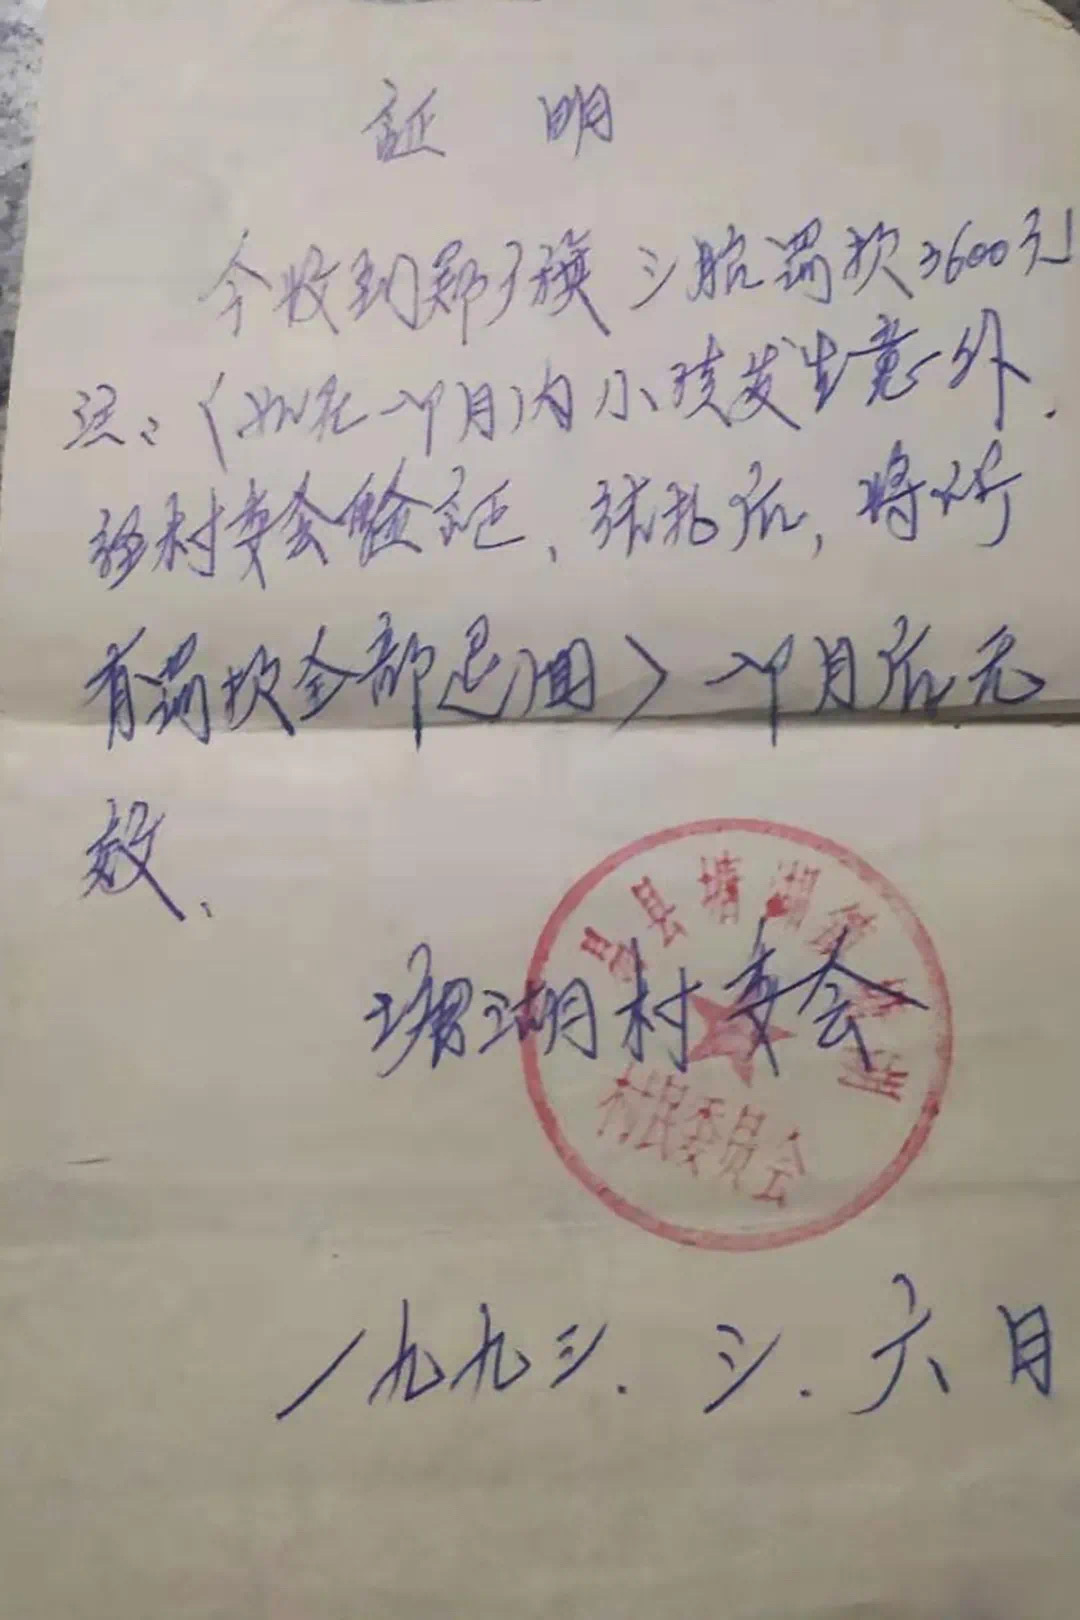 証 明
今收到郑子旗三胎罚款3600元
注：（如在一个月内小孩发生意外.
经村委会验证、结扎后，将所
有罚款全部退回）一个月后无
效、
塘湖村委会
县塘湖镇
村民委员会
一九九三.三.六月